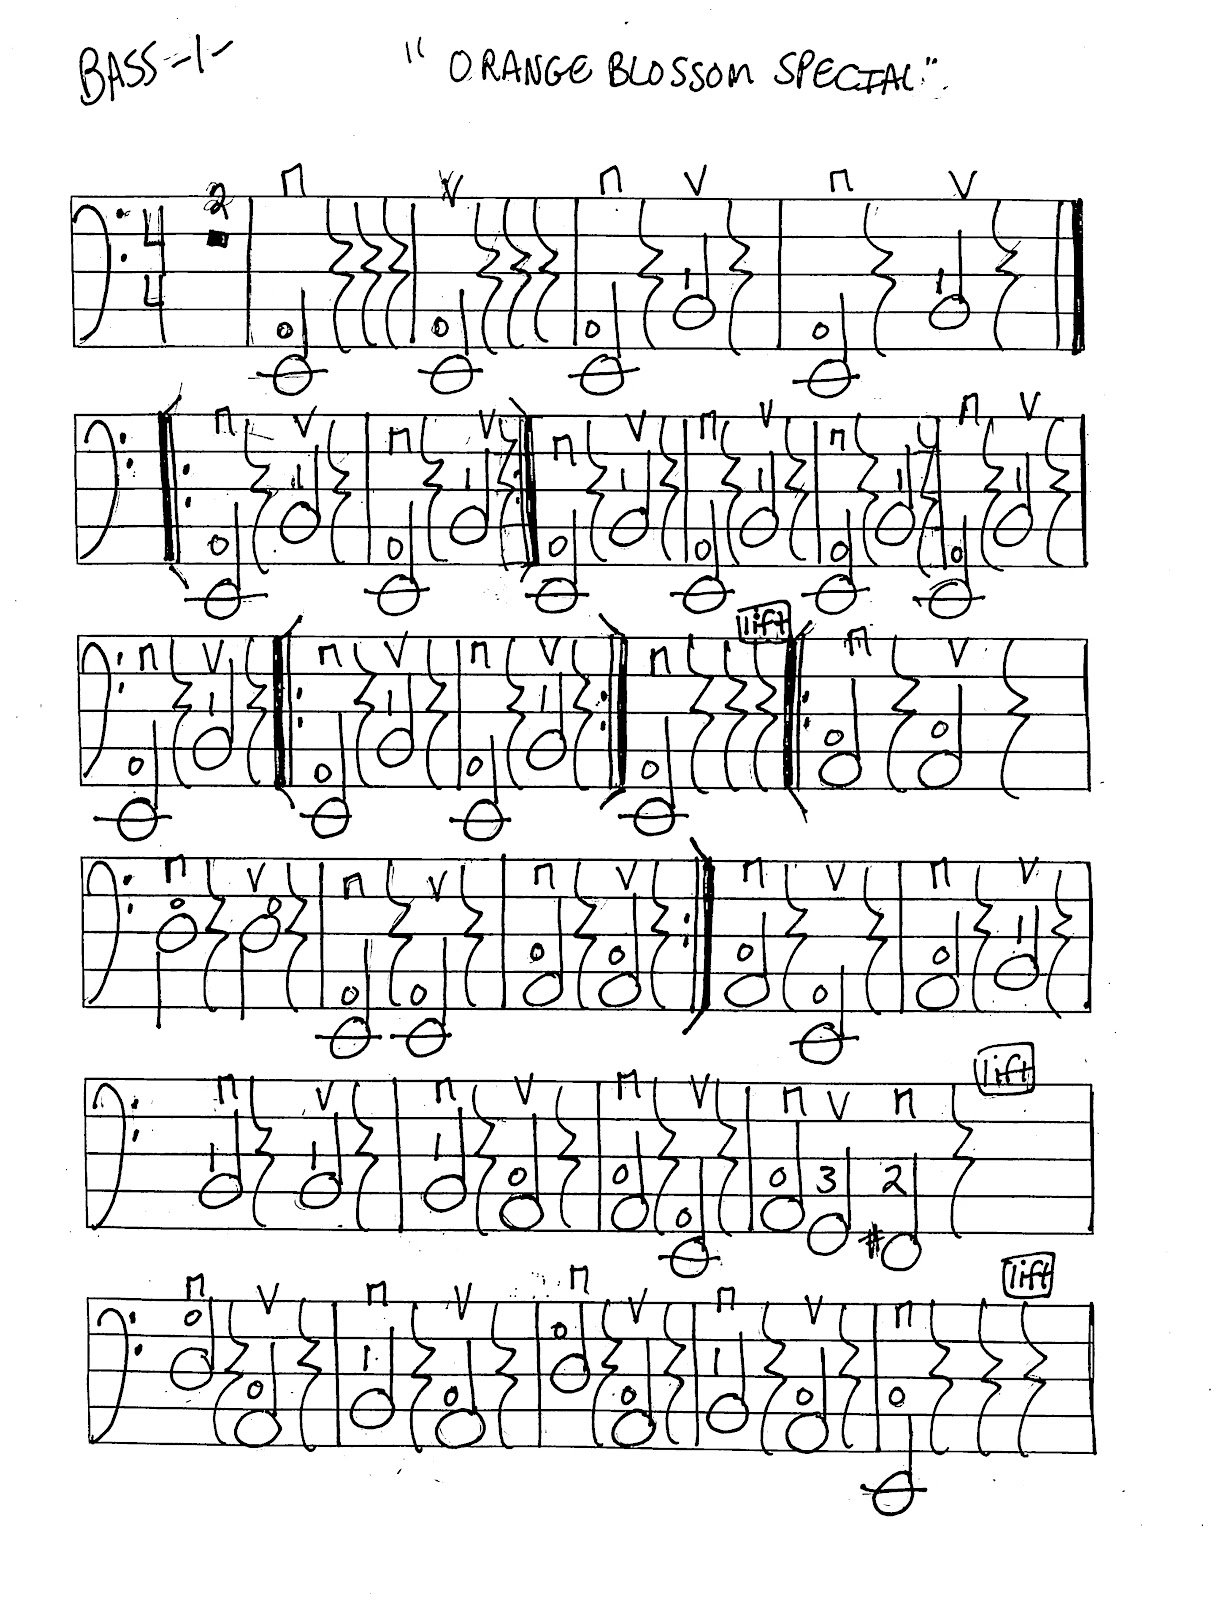 BASS -1-
"ORANGE BLOSSOM SPECIAL"
2
4
4
0 0 0 1 0 1
0 1 0 1 0 1 0 1 0 1 0 1
lift
0 1 0 1 0 1 0 0 0
0 0 0 0 0 0 0 0 0 1
lift
1 1 1 0 0 0 0 3 #2
lift
0 0 1 0 0 0 1 0 0